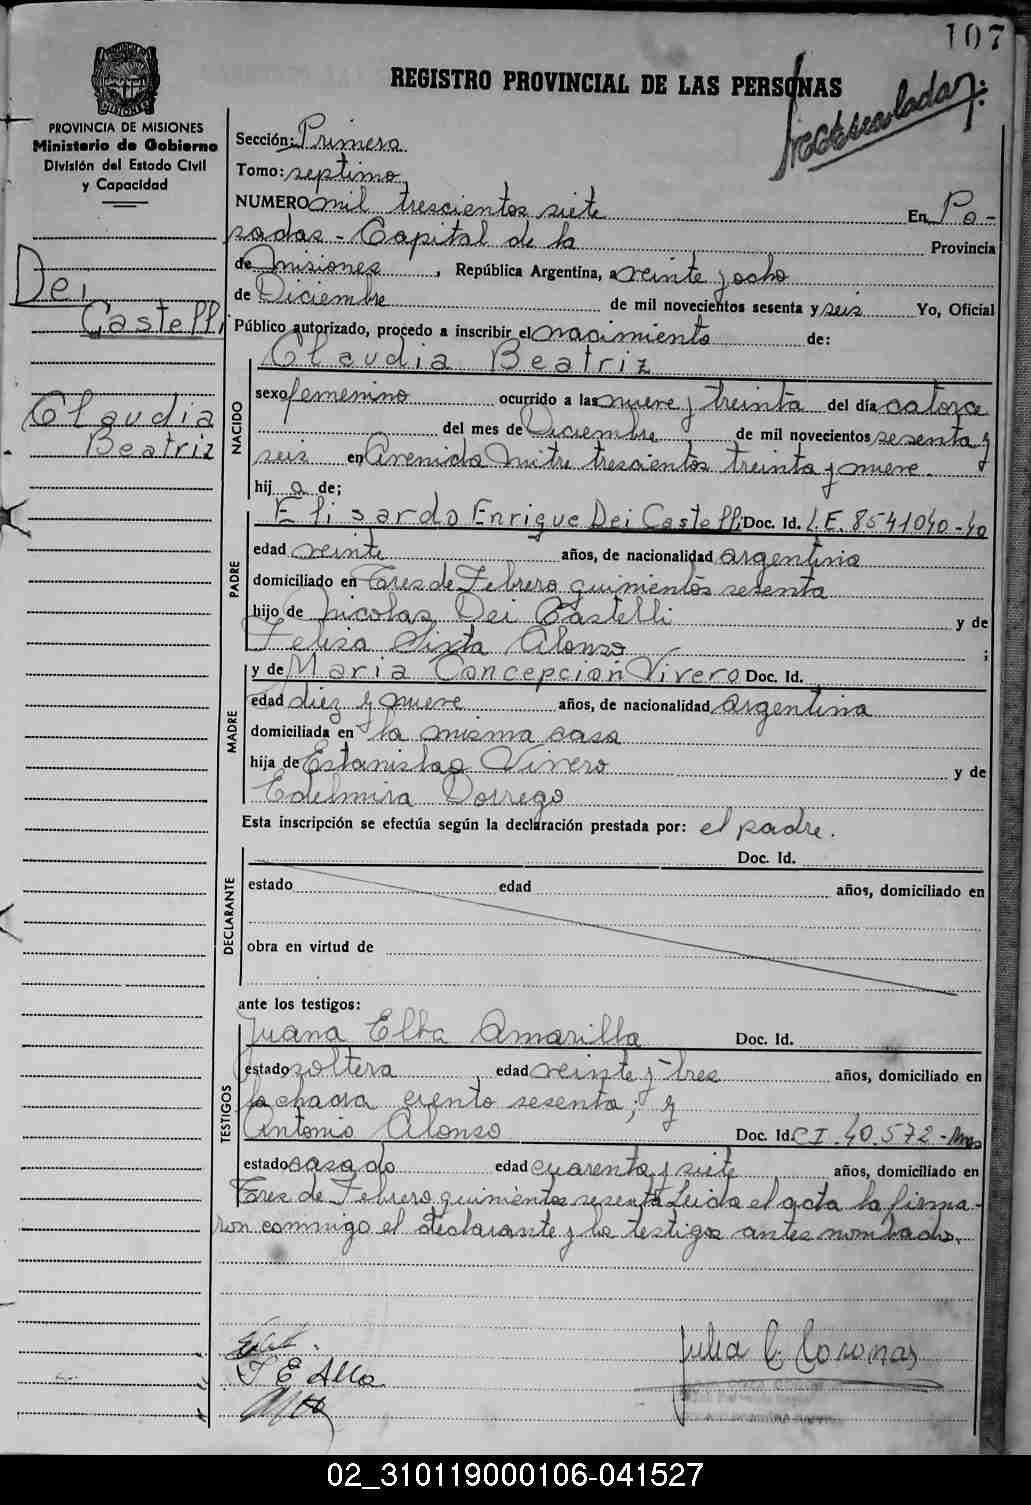 107
REGISTRO PROVINCIAL DE LAS PERSONAS
PROVINCIA DE MISIONES
Ministerio de Gobierno
División del Estado Civil
y Capacidad
Dei
Castelli
Claudia
Beatriz
Sección: Primera
Tomo: septimo
NUMERO mil trescientos siete En Po-
sadas - Capital de la Provincia
de Misiones, República Argentina, a veinte y ocho
de Diciembre de mil novecientos sesenta y seis Yo, Oficial
Público autorizado, procedo a inscribir el nacimiento de:
Claudia Beatriz
NACIDO
sexo femenino ocurrido a las nueve y treinta del día catorce
del mes de Diciembre de mil novecientos sesenta y
seis en Avenida Mitre trescientos treinta y nueve.
hij a de;
PADRE
Elisardo Enrique Dei Castelli Doc. Id. L.E. 8541040-40
edad veinte años, de nacionalidad argentina
domiciliado en Tres de Febrero quinientos sesenta
hijo de Nicolas Dei Castelli y de
Felisa Sixta Alonso ;
MADRE
y de Maria Concepcion Vivero Doc. Id.
edad diez y nueve años, de nacionalidad argentina
domiciliada en la misma casa
hija de Estanislao Vivero y de
Edelmira Dorrego
Esta inscripción se efectúa según la declaración prestada por: el padre.
DECLARANTE
Doc. Id.
estado edad años, domiciliado en
obra en virtud de
ante los testigos:
TESTIGOS
Juana Elba Amarilla Doc. Id.
estado soltera edad veinte y tres años, domiciliado en
la chacra ciento sesenta; y
Antonio Alonso Doc. Id. C.I. 40.572-Mnes
estado casado edad cuarenta y siete años, domiciliado en
Tres de Febrero quinientos sesenta Leida el acta la firma-
ron commigo el declarante y los testigos antes nombrados.
Julia C. Coronas
02_310119000106-041527